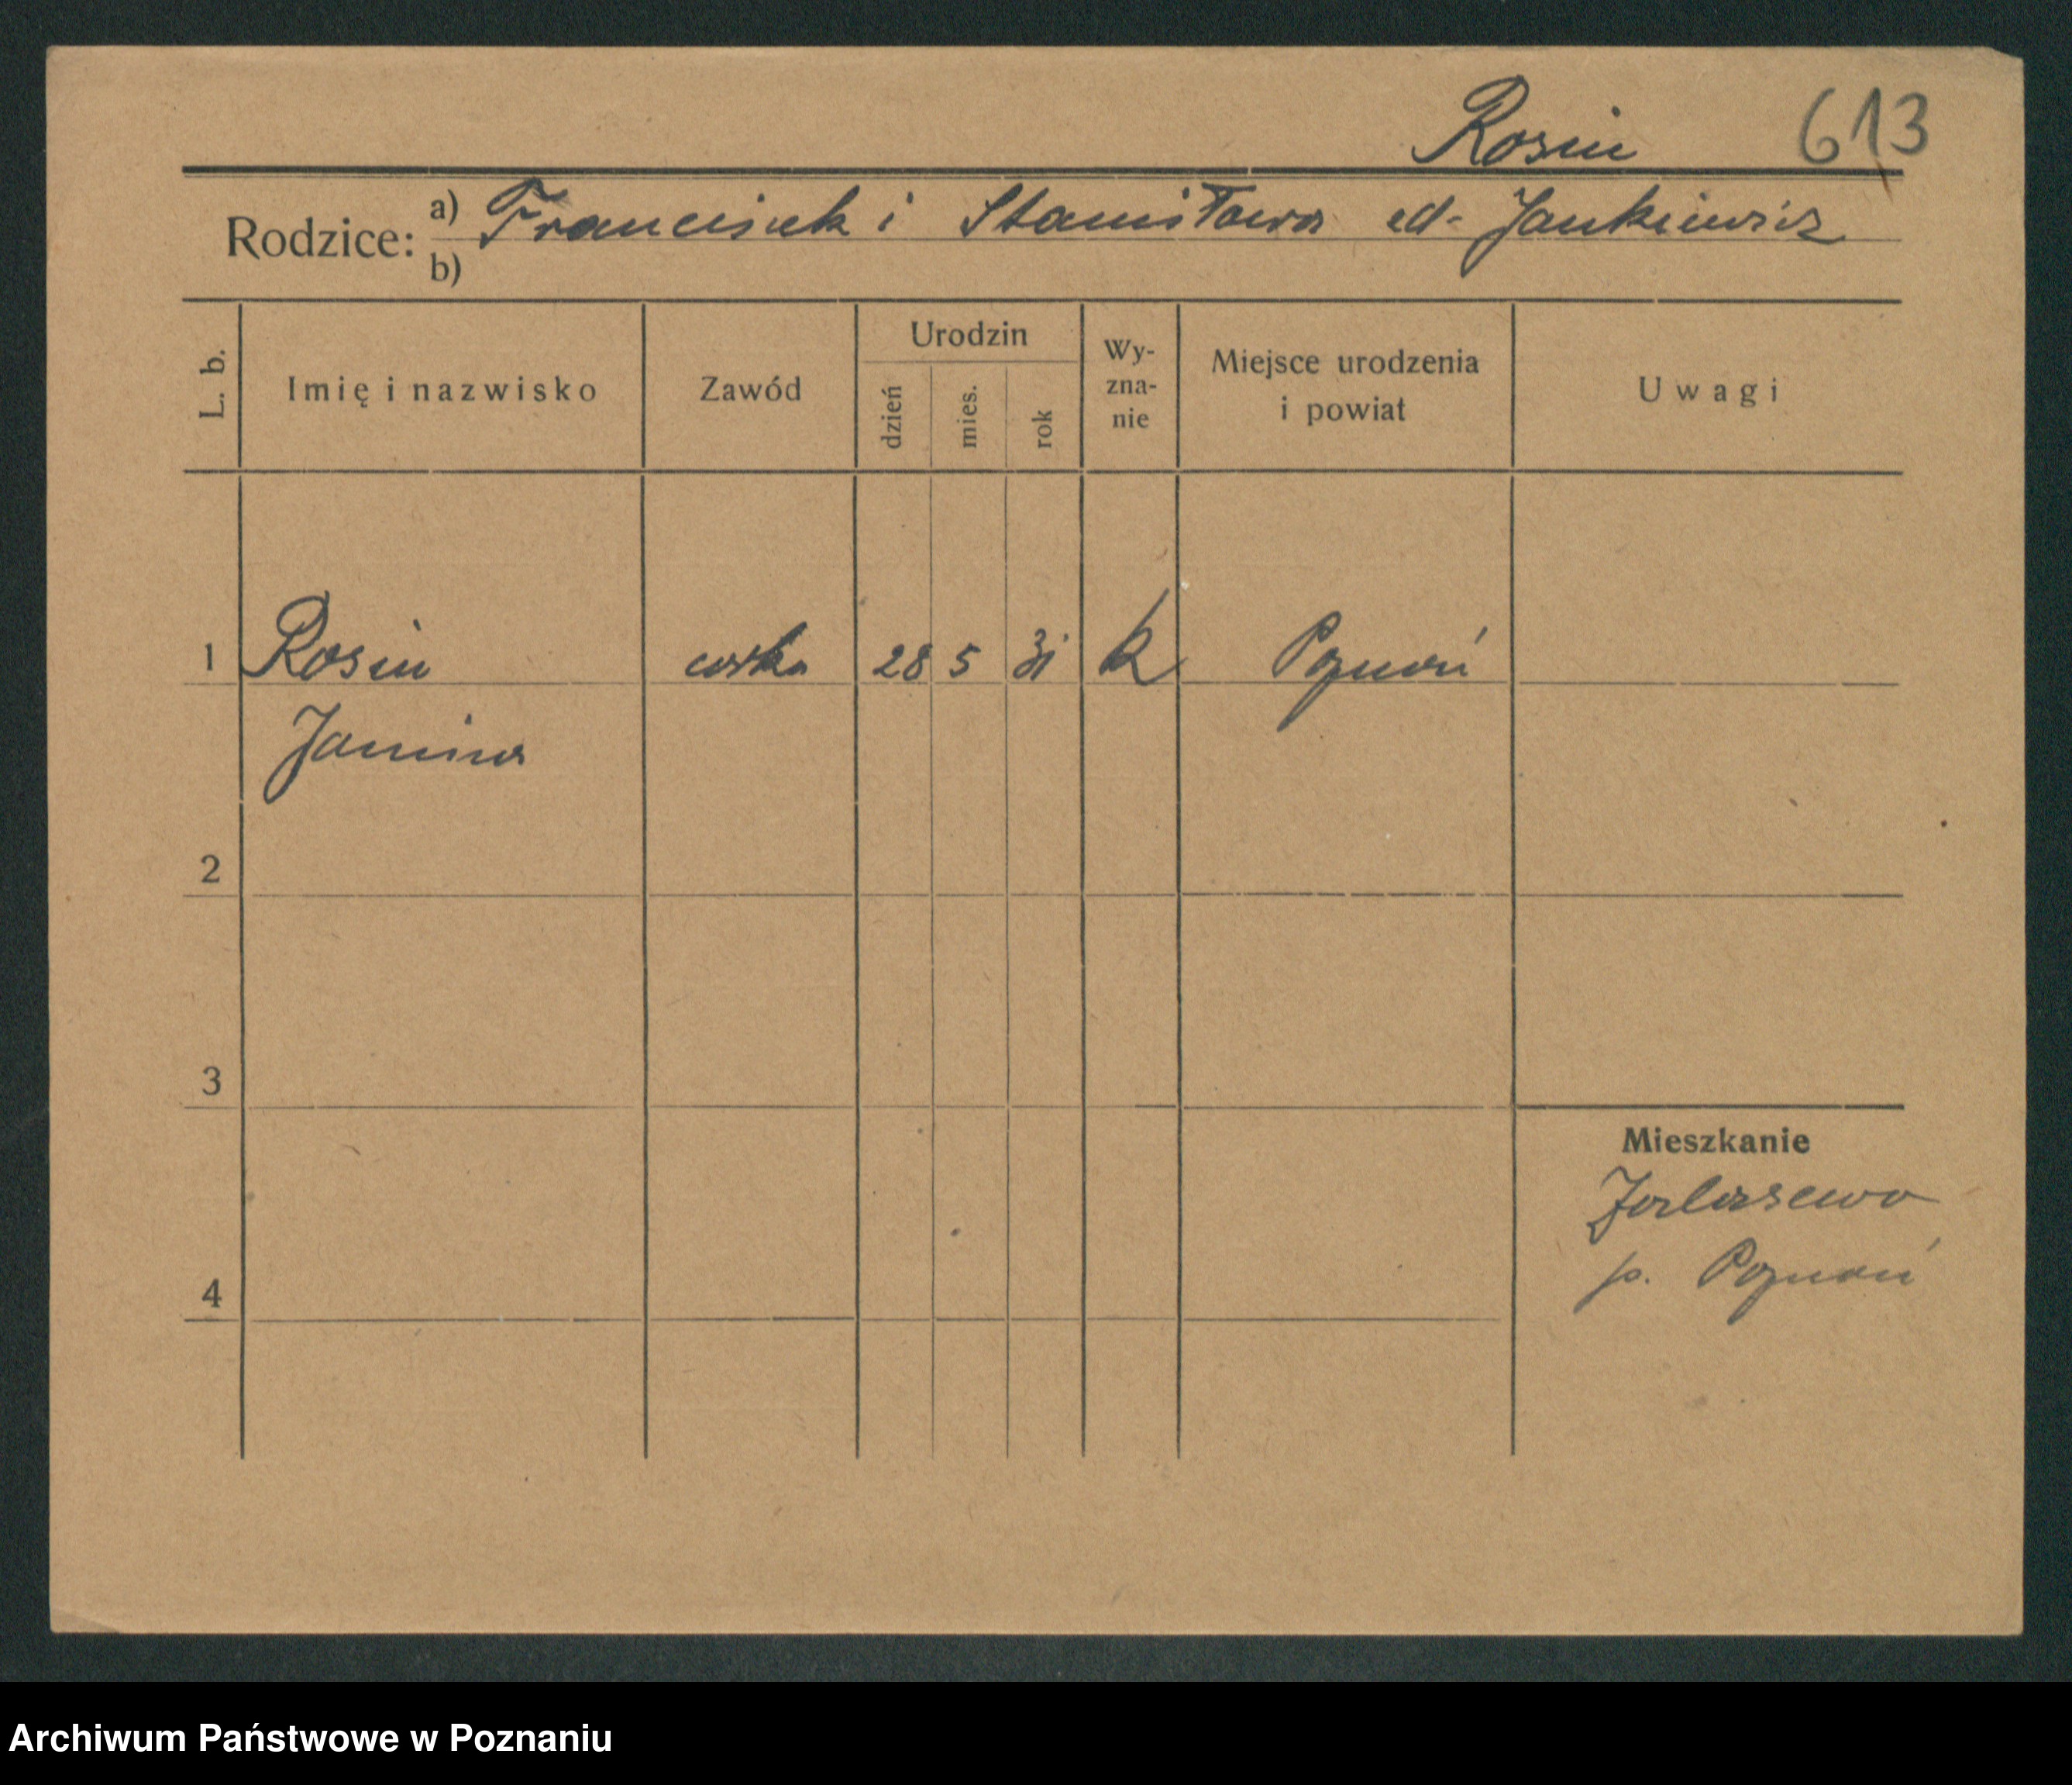 Rosin 613
Rodzice: a) Franciszek i Stanisława ed. Jankiewicz
b)
L. b. Imię i nazwisko Zawód Urodzin dzień mies. rok Wy-zna-nie Miejsce urodzenia i powiat Uwagi
1 Rosin córka 28 5 31 k Poznań
Janina
2
3
Mieszkanie
p. Poznań
4
Archiwum Państwowe w Poznaniu